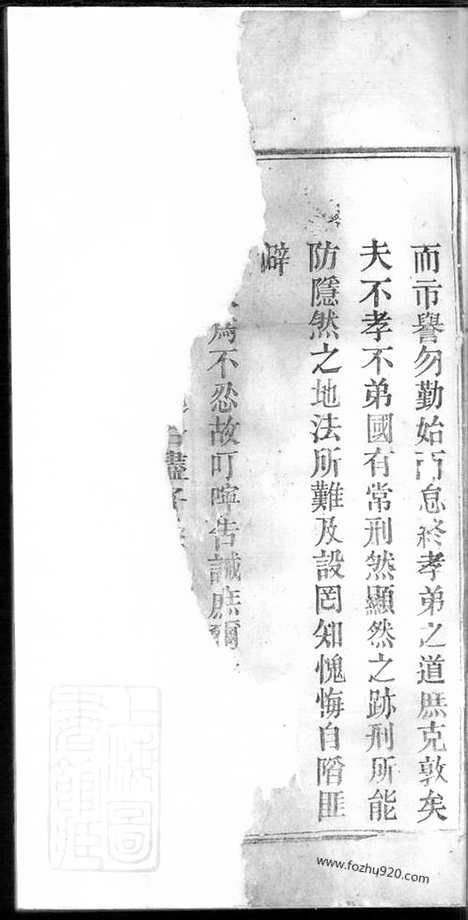 而市譽勿勤始而怠終孝弟之道庶克敦矣
夫不孝不弟國有常刑然顯然之跡刑所能
防隱然之地法所難及設罔知愧悔自陷匪
辟
爲不忍故叮嚀告誡庶爾
盡子
上海圖書館藏
www.fozhu920.com